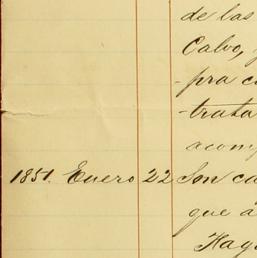 de las
Calvo,
pra c
trata
acom
1851. Enero 22 Son ca
que á
Haga